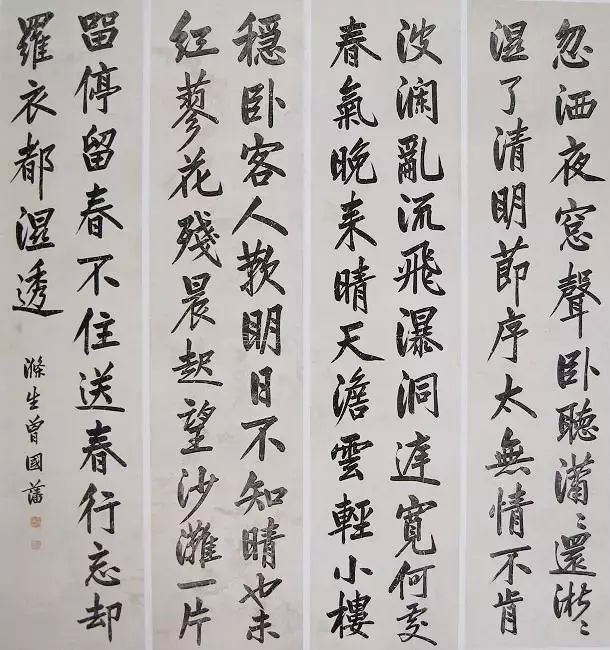 忽洒夜窓聲卧聽瀟〻還淅〻
湿了清明節序太無情不肯
波瀾亂流飛瀑洞庭寬何處
春氣晚来晴天澹雲輕小樓
穩卧客人歎明日不知晴也未
红蓼花殘晨起望沙灘一片
畱停留春不住送春行忘却
羅衣都湿透
滌生曾國藩